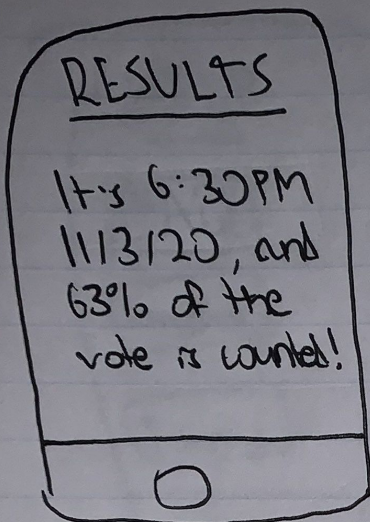 RESULTS
It's 6:30PM
11/3/20, and
63% of the
vote is counted!